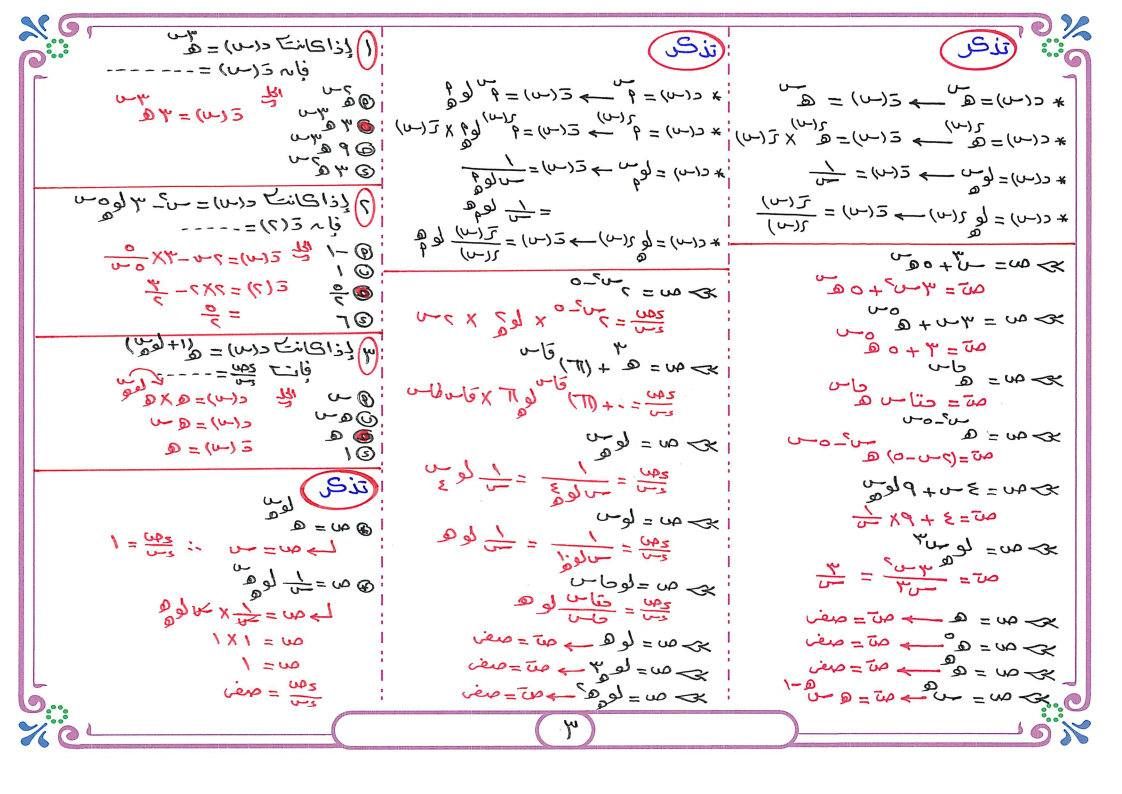 تذكر
* د(س) = هـ^س ← دَ(س) = هـ^س
* د(س) = هـ^ر(س) ← دَ(س) = هـ^ر(س) × رَ(س)
* د(س) = لو_هـ س ← دَ(س) = ١/س
* د(س) = لو_هـ ر(س) ← دَ(س) = رَ(س)/ر(س)
ص = س^٣ + ٥هـ^س
صَ = ٣س^٢ + ٥هـ^س
ص = ٣س + هـ^٥س
صَ = ٣ + ٥هـ^٥س
ص = هـ^حاس
صَ = حتاس هـ^حاس
ص = هـ^(س^٢-٥س)
صَ = (٢س-٥) هـ^(س^٢-٥س)
ص = ٤س + ٩لو_هـ س
صَ = ٤ + ٩×١/س
ص = لو_هـ س^٣
صَ = ٣س^٢/س^٣ = ٣/س
ص = هـ ← صَ = صفر
ص = هـ^٥ ← صَ = صفر
ص = هـ^هـ ← صَ = صفر
ص = س^هـ ← صَ = هـ س^(هـ-١)
تذكر
* د(س) = م^س ← دَ(س) = م^س لو_هـ م
* د(س) = م^ر(س) ← دَ(س) = م^ر(س) لو_هـ م × رَ(س)
* د(س) = لو_م س ← دَ(س) = ١/(س لو_هـ م)
= ١/س لو_م هـ
* د(س) = لو_م ر(س) ← دَ(س) = رَ(س)/ر(س) لو_م هـ
ص = ٢^(س^٢-٥)
ءص/ءس = ٢^(س^٢-٥) × لو_هـ ٢ × ٢س
ص = هـ^٣ + (π٦)^قاس
ءص/ءس = ٠ + (π٦)^قاس لو_هـ π٦ × قاس طاس
ص = لو_٤ س
ءص/ءس = ١/(س لو_هـ ٤) = ١/س لو_٤ هـ
ص = لوس
ءص/ءس = ١/(س لو_هـ ١٠) = ١/س لوهـ
ص = لوحاس
ءص/ءس = حتاس/حاس لوهـ
ص = لوهـ ← صَ = صفر
ص = لو_هـ ٣ ← صَ = صفر
ص = لو_هـ هـ^٢ ← صَ = صفر
١ إذا كانت د(س) = هـ^٣س
فإنه دَ(س) = --------
الحل
دَ(س) = ٣هـ^٣س
أ هـ^٢س
ب ٣هـ^٣س
ج ٩هـ^٣س
د ٣هـ^٢س
٢ إذا كانت د(س) = س^٢ - ٣لو_هـ ٥س
فإنه دَ(٢) = -----
أ -١
الحل دَ(س) = ٢س - ٣×٥/٥س
ب ١
دَ(٢) = ٢×٢ - ٣/٢
ج ٥/٢
= ٥/٢
د ٦
٣ إذا كانت د(س) = هـ^(١+لو_هـ س)
فإن ءص/ءس = -----
أ س
الحل د(س) = هـ × هـ^لو_هـ س
ب هـ س
د(س) = هـ س
ج هـ
دَ(س) = هـ
د ١
تذكر
ص = هـ^لو_هـ س
ص = س ∴ ءص/ءس = ١
ص = ١/س لو_هـ هـ^س
ص = ١/س × س لو_هـ هـ
ص = ١×١
ص = ١
ءص/ءس = صفر
٣